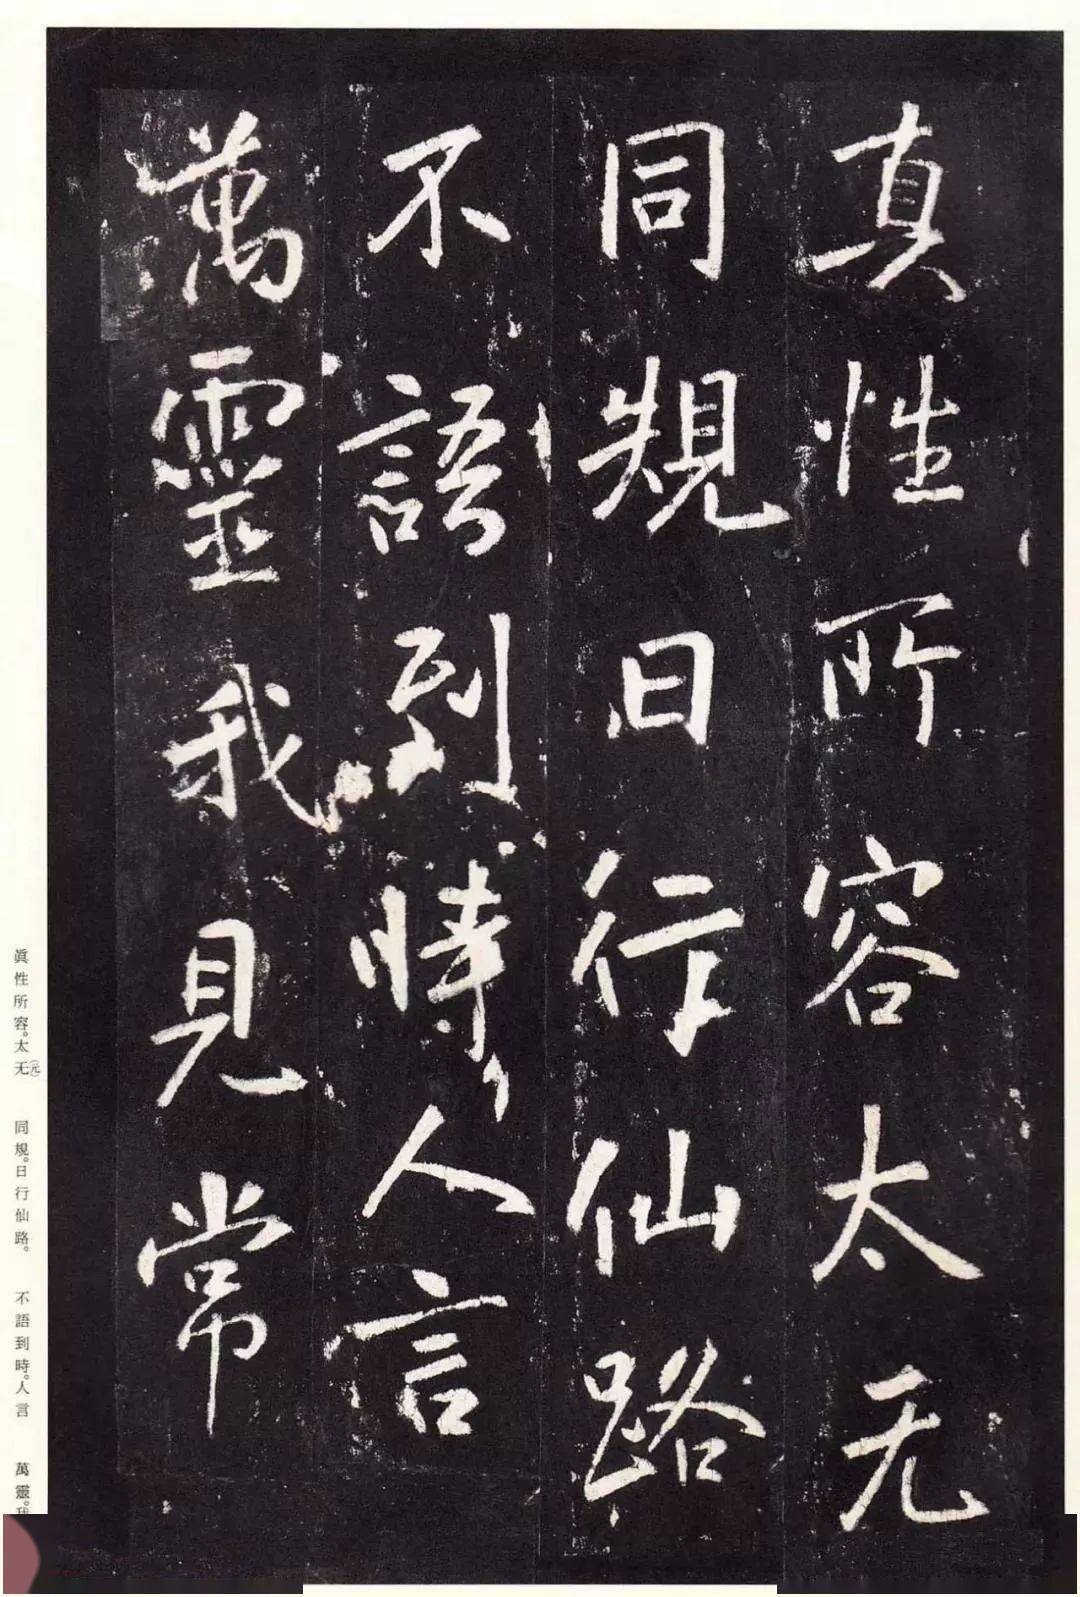 真性所容太无
同規日行仙路
不語到時人言
萬靈我見常
眞性所容。太无(元)
同規。日行仙路。
不語到時。人言
萬靈。